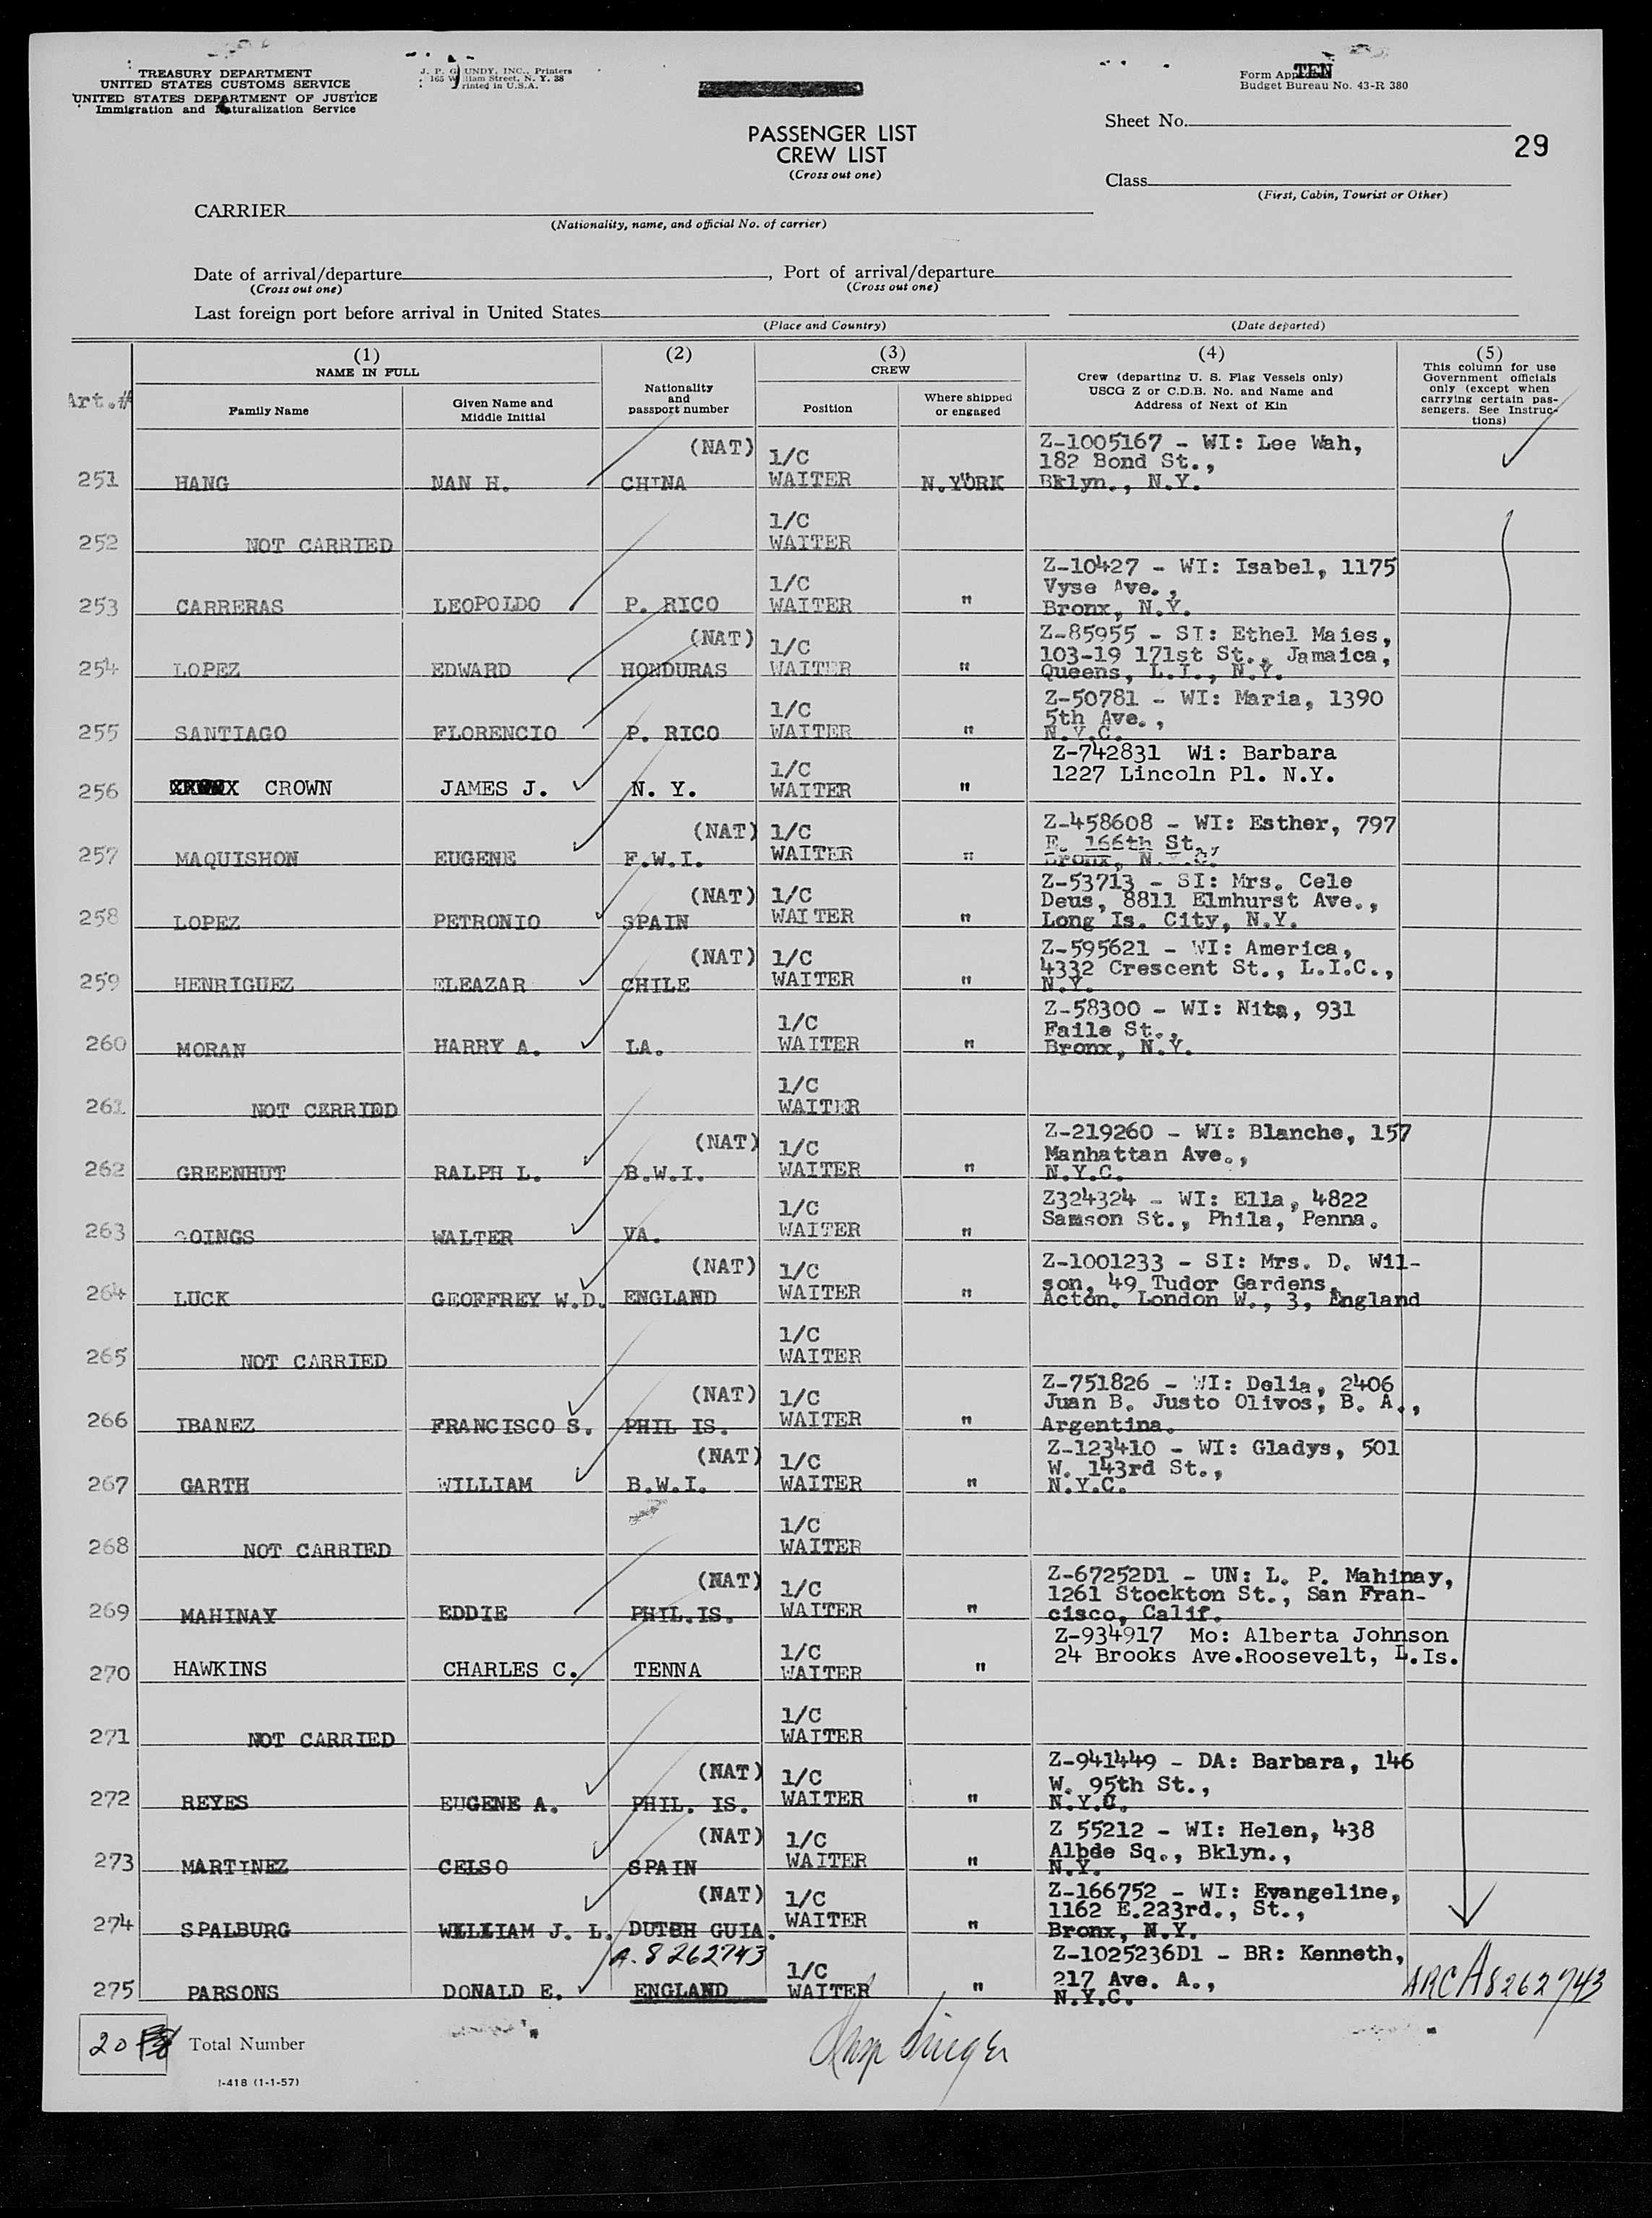 TREASURY DEPARTMENT
UNITED STATES CUSTOMS SERVICE
UNITED STATES DEPARTMENT OF JUSTICE
Immigration and Naturalization Service
J. P. GUNDY, INC., Printers
165 William Street, N. Y. 38
Printed in U.S.A.
TEN
Form Approved
Budget Bureau No. 43-R 380
PASSENGER LIST
CREW LIST
(Cross out one)
Sheet No.
29
Class
(First, Cabin, Tourist or Other)
CARRIER
(Nationality, name, and official No. of carrier)
Date of arrival/departure , Port of arrival/departure
(Cross out one) (Cross out one)
Last foreign port before arrival in United States
(Place and Country) (Date departed)
Art.#
(1) NAME IN FULL
Family Name
Given Name and Middle Initial
(2) Nationality and passport number
(3) CREW
Position
Where shipped or engaged
(4) Crew (departing U. S. Flag Vessels only)
USCG Z or C.D.B. No. and Name and
Address of Next of Kin
(5) This column for use
Government officials
only (except when
carrying certain pas-
sengers. See Instruc-
tions)
251 HANG NAN H. (NAT) CHINA 1/C WAITER N.YORK Z-1005167 - WI: Lee Wah, 182 Bond St., Bklyn., N.Y.
252 NOT CARRIED 1/C WAITER
253 CARRERAS LEOPOLDO P. RICO 1/C WAITER " Z-10427 - WI: Isabel, 1175 Vyse Ave., Bronx, N.Y.
254 LOPEZ EDWARD (NAT) HONDURAS 1/C WAITER " Z-85955 - SI: Ethel Maies, 103-19 171st St., Jamaica, Queens, L.I., N.Y.
255 SANTIAGO FLORENCIO P. RICO 1/C WAITER " Z-50781 - WI: Maria, 1390 5th Ave., N.Y.C.
256 CROWN JAMES J. N. Y. 1/C WAITER " Z-742831 Wi: Barbara 1227 Lincoln Pl. N.Y.
257 MAQUISHON EUGENE (NAT) F.W.I. 1/C WAITER " Z-458608 - WI: Esther, 797 E. 166th St., Bronx, N.Y.C.
258 LOPEZ PETRONIO (NAT) SPAIN 1/C WAITER " Z-53713 - SI: Mrs. Cele Deus, 8811 Elmhurst Ave., Long Is. City, N.Y.
259 HENRIGUEZ ELEAZAR (NAT) CHILE 1/C WAITER " Z-595621 - WI: America, 4332 Crescent St., L.I.C., N.Y.
260 MORAN HARRY A. LA. 1/C WAITER " Z-58300 - WI: Nita, 931 Faile St., Bronx, N.Y.
261 NOT CERRIED 1/C WAITER
262 GREENHUT RALPH L. (NAT) B.W.I. 1/C WAITER " Z-219260 - WI: Blanche, 157 Manhattan Ave., N.Y.C.
263 GOINGS WALTER VA. 1/C WAITER " Z324324 - WI: Ella, 4822 Samson St., Phila, Penna.
264 LUCK GEOFFREY W.D. (NAT) ENGLAND 1/C WAITER " Z-1001233 - SI: Mrs. D. Wil- son, 49 Tudor Gardens, Acton. London W., 3, England
265 NOT CARRIED 1/C WAITER
266 IBANEZ FRANCISCO S. (NAT) PHIL IS. 1/C WAITER " Z-751826 - WI: Delia, 2406 Juan B. Justo Olivos, B. A., Argentina.
267 GARTH WILLIAM (NAT) B.W.I. 1/C WAITER " Z-123410 - WI: Gladys, 501 W. 143rd St., N.Y.C.
268 NOT CARRIED 1/C WAITER
269 MAHINAY EDDIE (NAT) PHIL.IS. 1/C WAITER " Z-67252D1 - UN: L. P. Mahinay, 1261 Stockton St., San Fran- cisco, Calif.
270 HAWKINS CHARLES C. TENNA 1/C WAITER " Z-934917 Mo: Alberta Johnson 24 Brooks Ave.Roosevelt, L.Is.
271 NOT CARRIED 1/C WAITER
272 REYES EUGENE A. (NAT) PHIL. IS. 1/C WAITER " Z-941449 - DA: Barbara, 146 W. 95th St., N.Y.C.
273 MARTINEZ CELSO (NAT) SPAIN 1/C WAITER " Z 55212 - WI: Helen, 438 Albde Sq., Bklyn., N.Y.
274 SPALBURG WILLIAM J. L. (NAT) DUTCH GUIA. 1/C WAITER " Z-166752 - WI: Evangeline, 1162 E.223rd., St., Bronx, N.Y.
275 PARSONS DONALD E. A. 8262743 ENGLAND 1/C WAITER " Z-1025236D1 - BR: Kenneth, 217 Ave. A., N.Y.C. ARC A8262743
20 Total Number
I-418 (1-1-57)